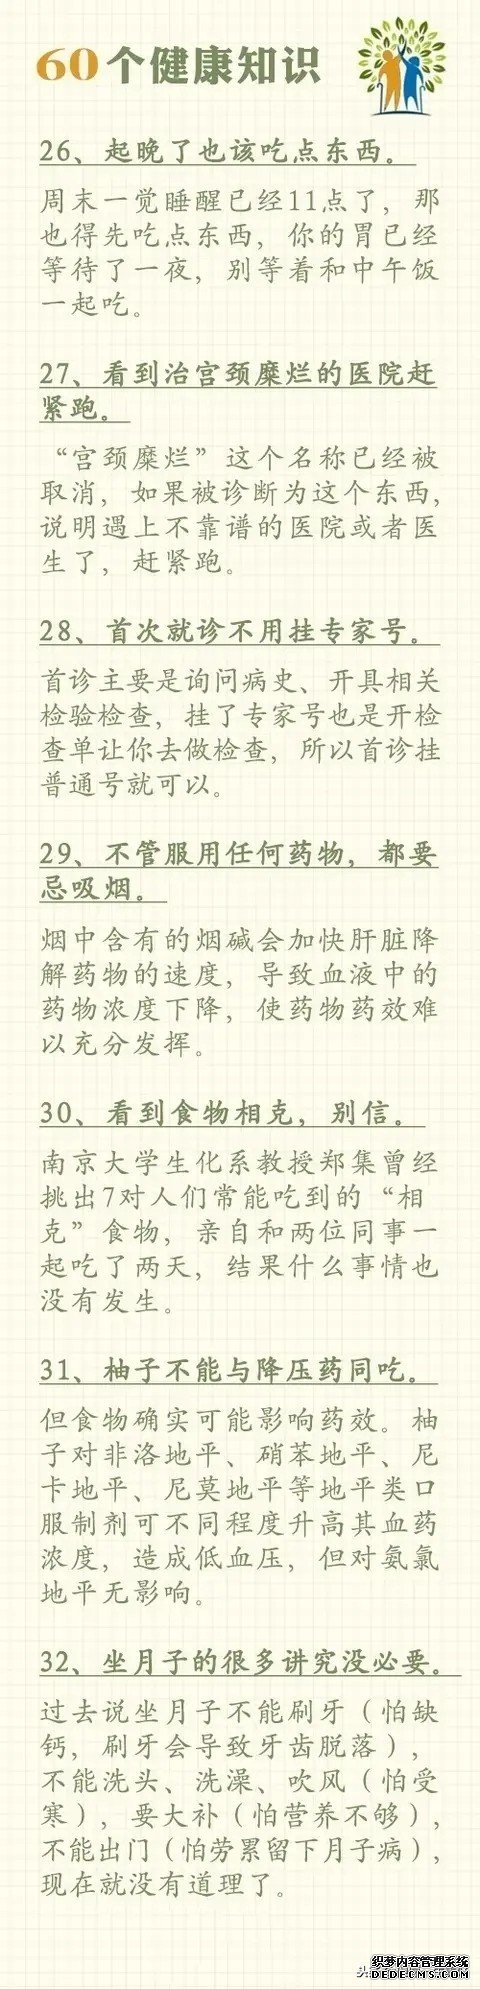 60个健康知识
26、起晚了也该吃点东西。
周末一觉睡醒已经11点了，那
也得先吃点东西，你的胃已经
等待了一夜，别等着和中午饭
一起吃。
27、看到治宫颈糜烂的医院赶
紧跑。
“宫颈糜烂”这个名称已经被
取消，如果被诊断为这个东西，
说明遇上不靠谱的医院或者医
生了，赶紧跑。
28、首次就诊不用挂专家号。
首诊主要是询问病史、开具相关
检验检查，挂了专家号也是开检
查单让你去做检查，所以首诊挂
普通号就可以。
29、不管服用任何药物，都要
忌吸烟。
烟中含有的烟碱会加快肝脏降
解药物的速度，导致血液中的
药物浓度下降，使药物药效难
以充分发挥。
30、看到食物相克，别信。
南京大学生化系教授郑集曾经
挑出7对人们常能吃到的“相
克”食物，亲自和两位同事一
起吃了两天，结果什么事情也
没有发生。
31、柚子不能与降压药同吃。
但食物确实可能影响药效。柚
子对非洛地平、硝苯地平、尼
卡地平、尼莫地平等地平类口
服制剂可不同程度升高其血药
浓度，造成低血压，但对氨氯
地平无影响。
32、坐月子的很多讲究没必要。
过去说坐月子不能刷牙（怕缺
钙，刷牙会导致牙齿脱落），
不能洗头、洗澡、吹风（怕受
寒），要大补（怕营养不够），
不能出门（怕劳累留下月子病），
现在就没有道理了。
织梦内容管理系统
DEDECMS.COM